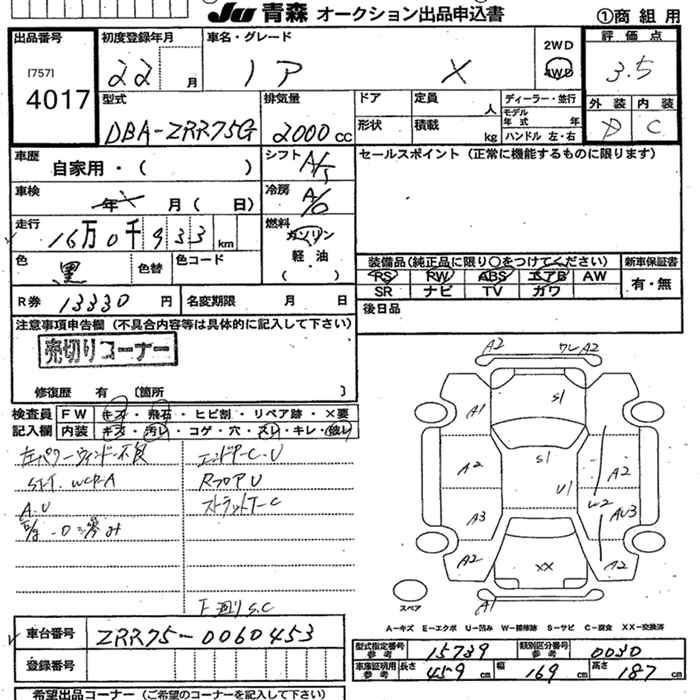 JU 青森 オークション出品申込書 ①商組用
出品番号 初度登録年月 車名・グレード 2WD 評価点
[757] 22 月 ノア X 4WD 3.5
4017 型式 排気量 ドア 定員 人 ディーラー・並行 外装 内装
DBA-ZRR75G 2000cc 形状 積載 kg モデル年式 年 ハンドル 左・右 D C
車歴 自家用・( ) シフト A/T セールスポイント(正常に機能するものに限ります)
車検 年 月(日) 冷房 A/C
走行 16万0千933km 燃料 ガソリン
色 黒 色替 色コード 軽油 ( ) 装備品(純正品に限り○をつけてください) 新車保証書
PS PW ABS エアB AW 有・無
R券 13330円 名変期限 月 日 SR ナビ TV ガワ
注意事項申告欄(不具合内容等は具体的に記入して下さい) 後日品
売切りコーナー
修復歴 有 [箇所 ]
検査員 FW キズ・飛石・ヒビ割・リペア跡・×要
記入欄 内装 キズ・汚レ・コゲ・穴・スレ・キレ・破レ
左パワーウィンドー不良 エンドアーC.U
RフロアU
A.U ストラットT-C
F廻りS.C
A2 ワレ A2
A1 S1
A2 S1 A2
U1
A3 AU3
A2 XX A2
A1
スペア
A-キズ E-エクボ U-凹み W-補修跡 S-サビ C-腐食 XX-交換済
車台番号 ZRR75-0060453
登録番号
型式指定番号 参考 15739 類別区分番号 参考 0030
車庫証明用 参考 長さ 459cm 幅 169cm 高さ 187cm
希望出品コーナー(ご希望のコーナーを記入して下さい)